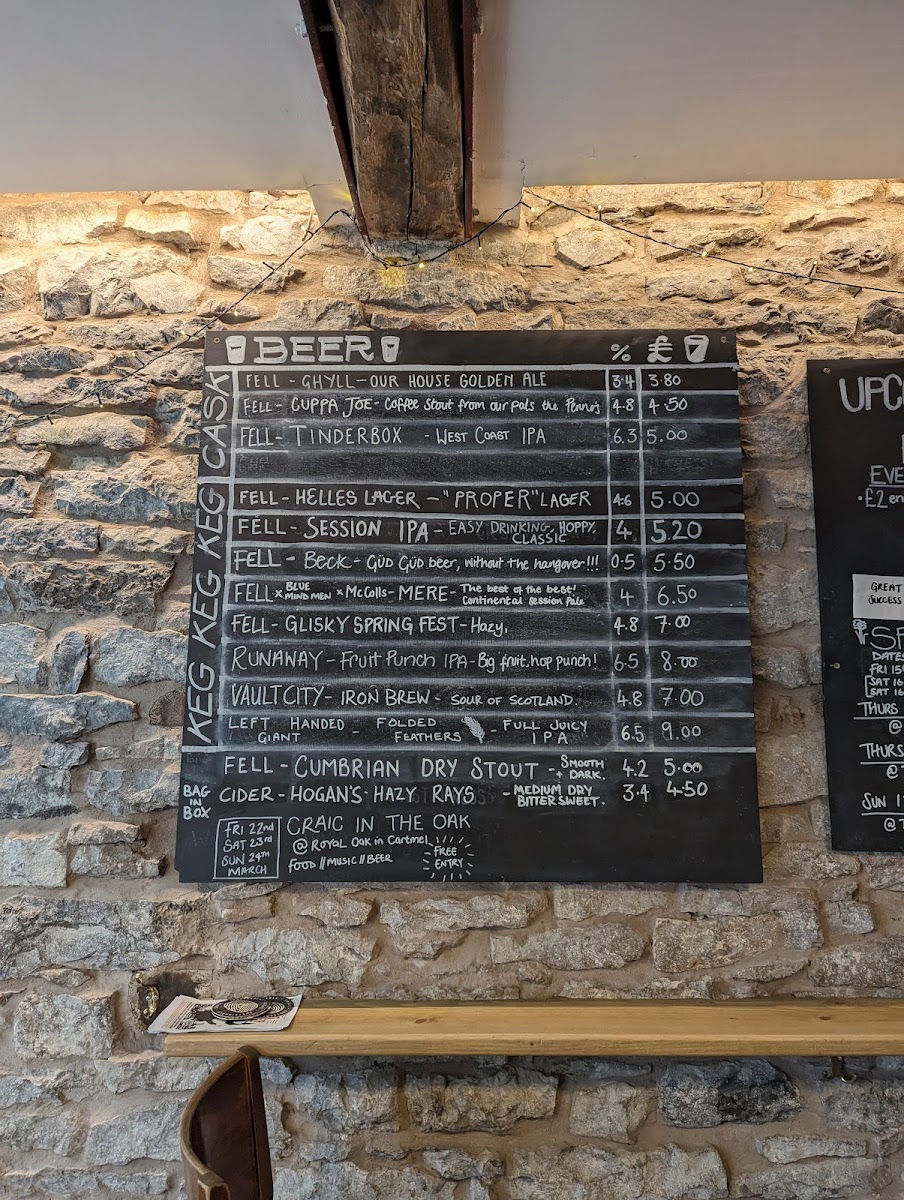 BEER % £
CASK
FELL - GHYLL - OUR HOUSE GOLDEN ALE 3.4 3.80
FELL - CUPPA JOE - Coffee Stout from our pals the 4.8 4.50
FELL - TINDERBOX - WEST COAST IPA 6.3 5.00
KEG KEG KEG
FELL - HELLES LAGER - "PROPER" LAGER 4.6 5.00
FELL - SESSION IPA - EASY DRINKING, HOPPY, CLASSIC 4 5.20
FELL - BECK - GÜD GÜD beer, without the hangover!!! 0.5 5.50
FELL x BLUE MIND MEN x McColls - MERE - The best of the best! Continental Session Pale 4 6.50
FELL - GLISKY SPRING FEST - Hazy, 4.8 7.00
RUNAWAY - Fruit Punch IPA - Big fruit, hop punch! 6.5 8.00
VAULT CITY - IRON BREW - SOUR OF SCOTLAND. 4.8 7.00
LEFT HANDED GIANT - FOLDED FEATHERS - FULL JUICY IPA 6.5 9.00
FELL - CUMBRIAN DRY STOUT - SMOOTH + DARK. 4.2 5.00
BAG IN BOX
CIDER - HOGAN'S HAZY RAYS - MEDIUM DRY BITTERSWEET. 3.4 4.50
FRI 22nd
SAT 23rd
SUN 24TH
MARCH
CRAIC IN THE OAK
@ ROYAL OAK in Cartmel
FOOD // MUSIC // BEER
FREE
ENTRY
UPC
EVE
• £2 en
GREAT
SUCCESS
SP
DATES
FRI 15
SAT 16
SAT 16
THURS
@
THURS
@
SUN 1
@